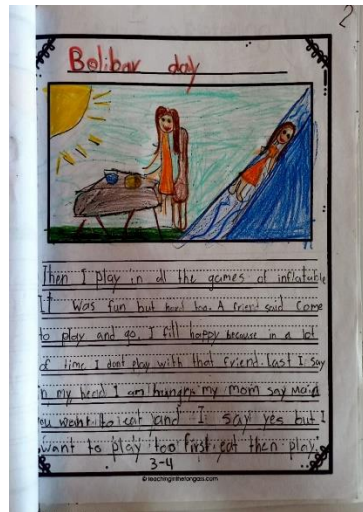 2
Bolibar day
Then I play in all the games of inflatable
It was fun but hard too. A friend said come
to play and go. I fill happy because in a lot
of time I dont play with that friend. last I say
in my head I am hungry my mom say
ou want to eat and I say yes but I
want to play too first eat then play.
3-4
© teachinginthetongass.com